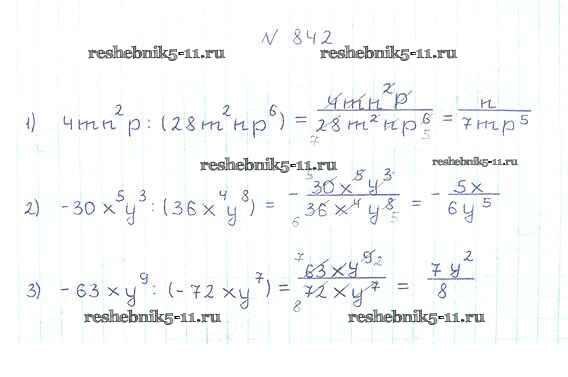 N 842
reshebnik5-11.ru reshebnik5-11.ru
1) 4mn²p : (28m²np⁶) = 4mn²p / 28m²np⁶ 7 5 = n / 7mp⁵
reshebnik5-11.ru reshebnik5-11.ru
2) -30x⁵y³ : (36x⁴y⁸) = - 5 30x⁵y³ / 6 36x⁴y⁸ 5 = - 5x / 6y⁵
3) -63xy⁹ : (-72xy⁷) = 7 63xy⁹ 2 / 8 72xy⁷ = 7y² / 8
reshebnik5-11.ru reshebnik5-11.ru